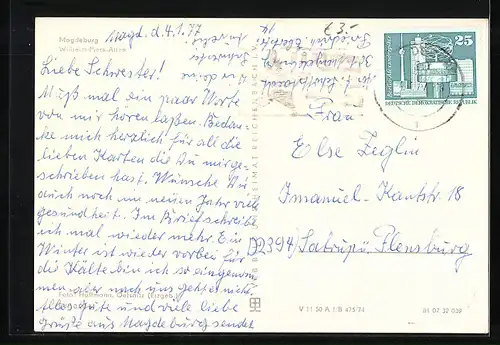 Magdeburg
Wilhelm-Pieck-Allee
Magd. d. 4.1.77
Liebe Schwester!
Muß mal ein paar Worte
von mir hören laßen. Bedan-
ke mich herzlich für all die
lieben Karten die Du mir ge-
schrieben hast. Wünsche Du
auch noch im neuen Jahr viel
gesundheit. Im Brief schreibe
ich mal wieder mehr. Ein
Winter ist wieder vorbei für
die Kälte bin ich so eingenom
men aber nach uns geht es nicht
Alles gute und viele liebe
Grüße aus Magdeburg sendet
Schwester
€3.-
25
DEUTSCHE DEMOKRATISCHE REPUBLIK
Frau
Else Zeglin
Imanuel-Kantstr. 18
(2394) Satrup ü/Flensburg
Foto: Hoffmann, Oelsnitz (Erzgeb.)
V 11 50 A 1/B 475/74
01 07 32 039